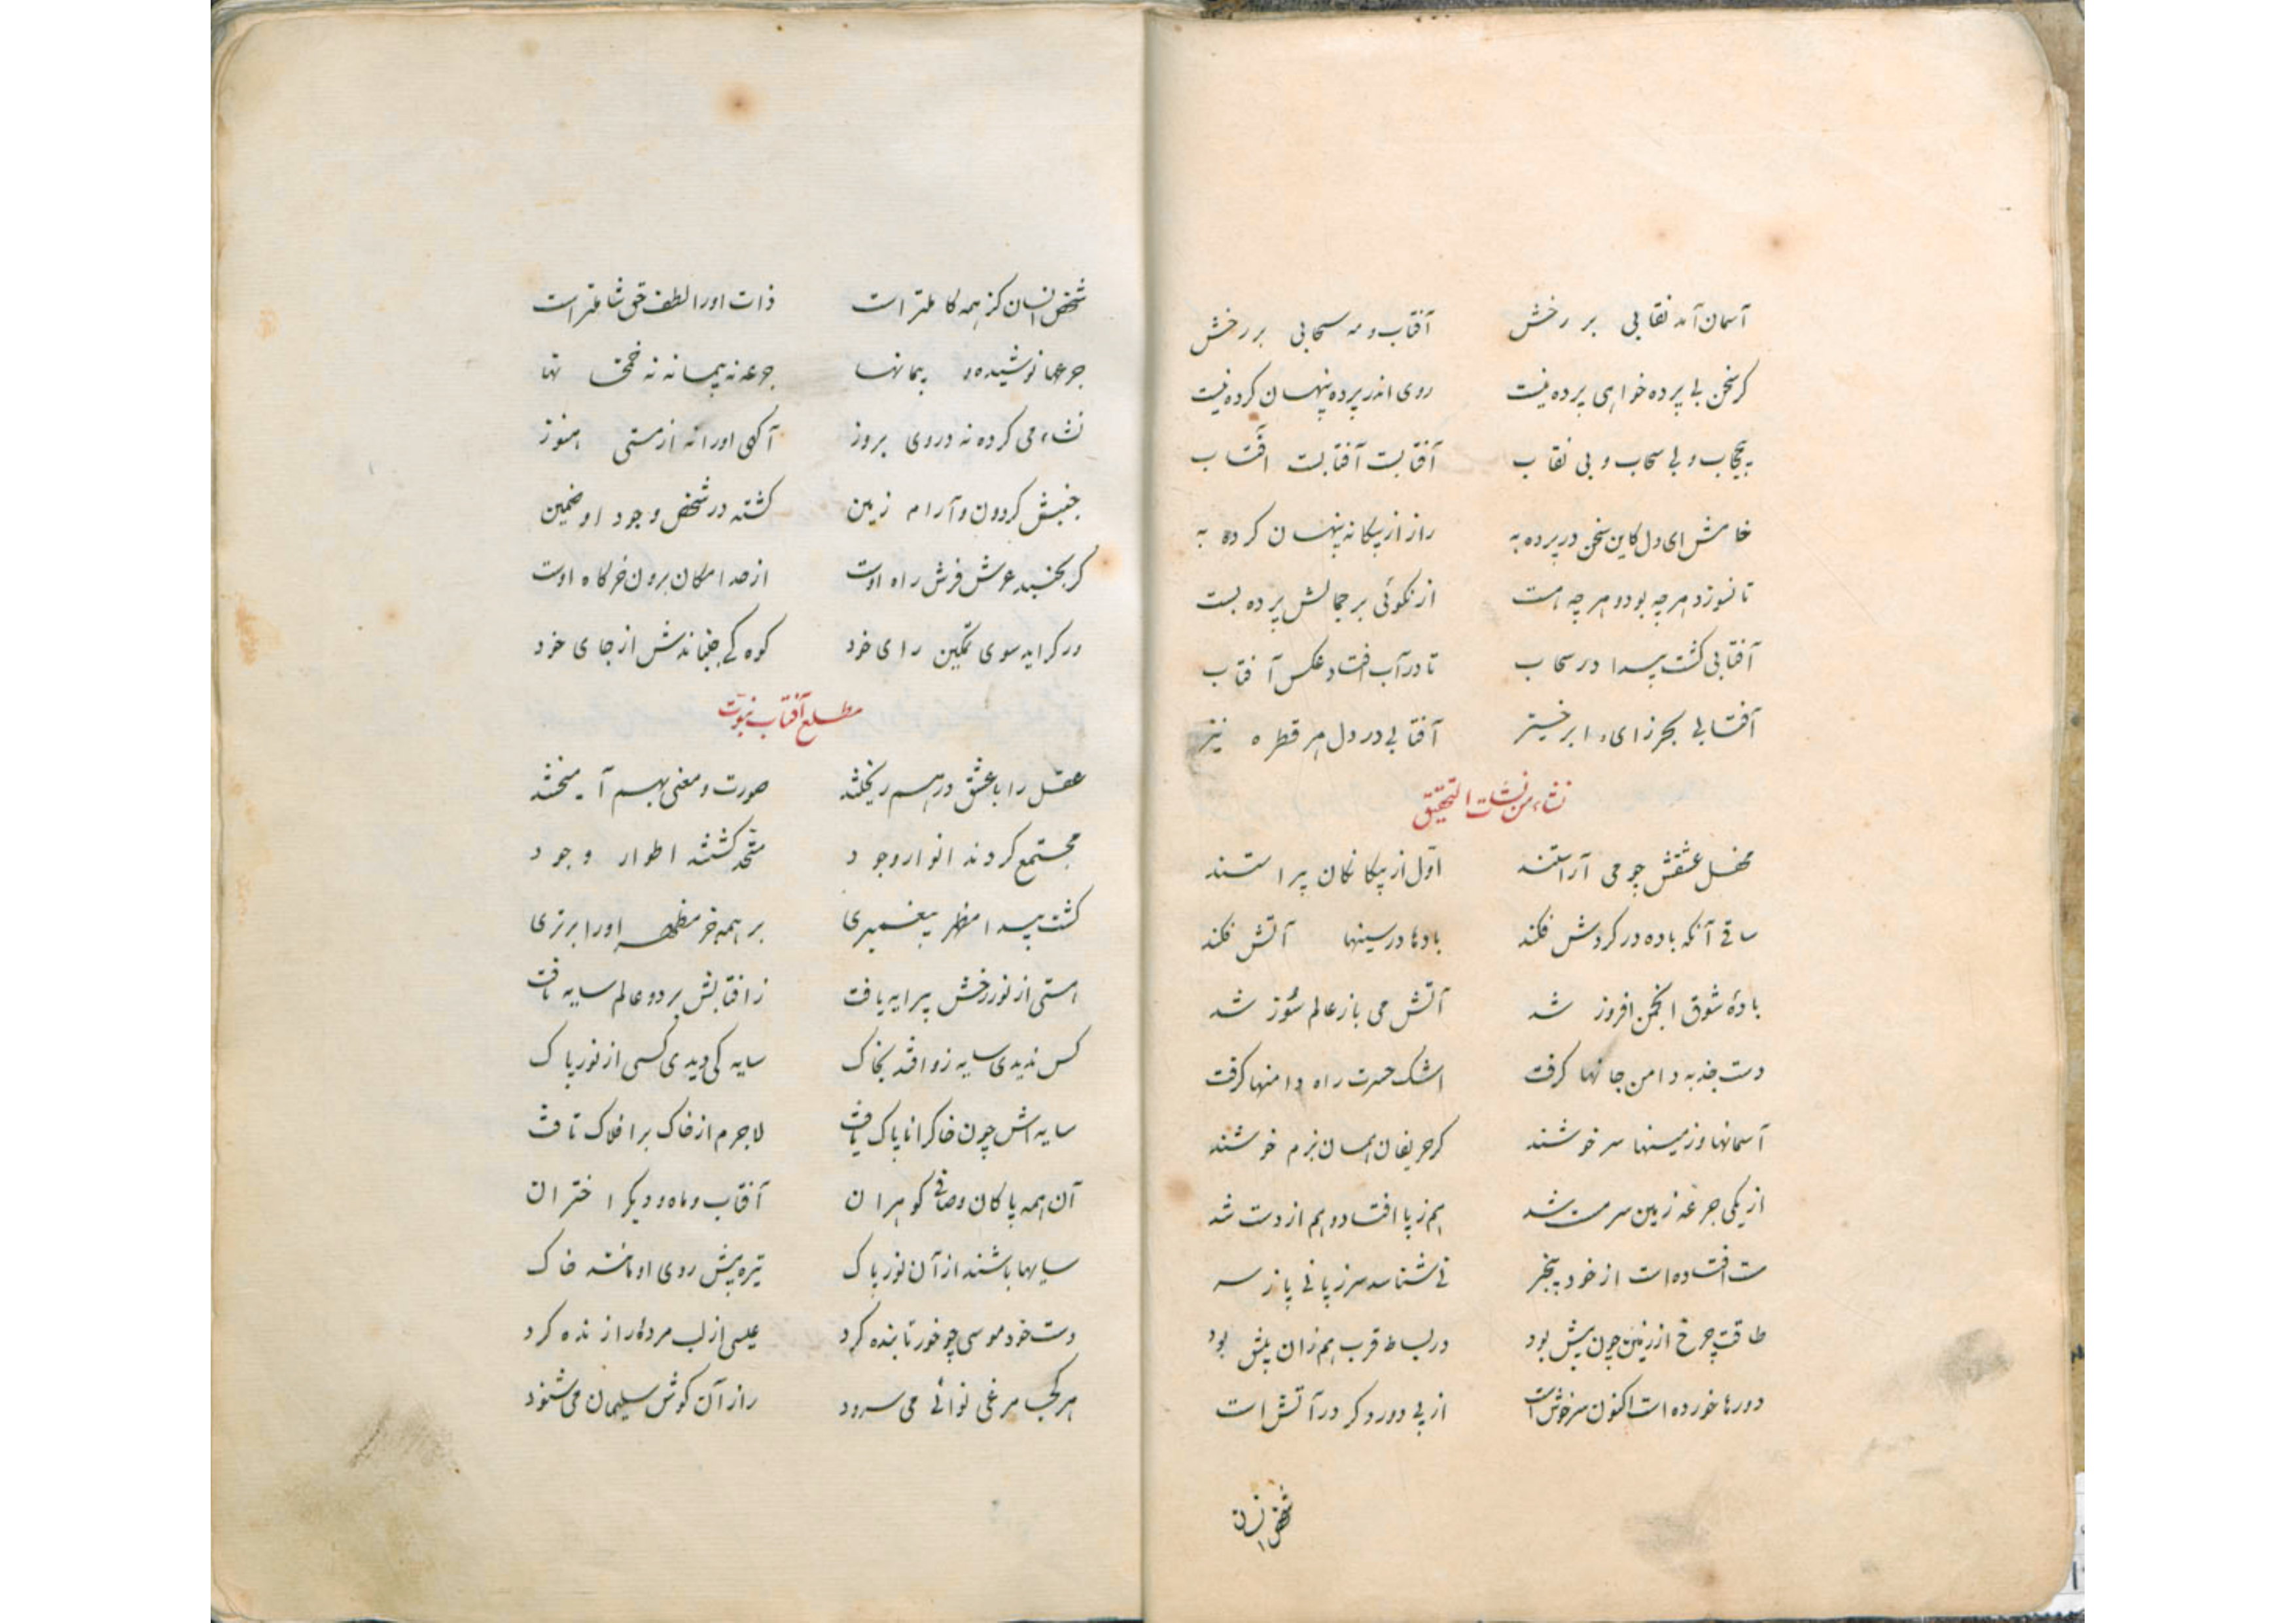 آسمان آمد نقابی بر رخش آفتاب و مه سحابی بر رخش
کر سخن بی پرده خواهی پرده نیست روی اندر پرده پنهان کرده نیست
بیحجاب و بی سحاب و بی نقاب آفتابست آفتابست آفتاب
خامش ای دل کاین سخن در پرده به راز از بیکانه پنهان کرده به
تا نسوزد هر چه بود و هر چه هست از نکوئی بر جمالش پرده بست
آفتابی کشت پیدا در سحاب تا در آب افتاد عکس آفتاب
آفتابی بحرزای و ابر خیز آفتابی در دل هر قطره نیز
نشاء من نشات التحقیق
محفل عشقش چو می آراستند اول از بیکانکان پیراستند
ساقی آنکه باده در کردش فکند بادها در سینها آتش فکند
بادهٔ شوق انجمن افروز شد آتش می باز عالم سوز شد
دست جذبه دامن جانها کرفت اشک حسرت راه دامنها کرفت
آسمانها و زمینها سر خوشند کر حریفان همان بزم خوشند
از یکی جرعه زمین سرمست شد هم ز پا افتاد و هم از دست شد
مست افتاده است از خود بیخبر نی شناسد سر ز پا نی پا ز سر
طاقت چرخ از زمین چون بیش بود در بساط قرب هم زان پیش بود
دورها خورده است اکنون سرخوش است از پی دور دکر در آتش است
شخص انسان
شخص انسان کز همه کاملتر است ذات او را لطف حق شاملتر است
جرعها نوشیده و پیمانها جرعه نه پیمانه نه خمخانها
نشاء می کرده نه در وی بروز آکهی او را نه از مستی هنوز
جنبش کردون و آرام زمین کشته در شخص وجود او ضمین
کر بجنبد عرش فرش راه اوست از حد امکان برون خرکاه اوست
ور کراید سوی تمکین رای خود کوه کی جنباندش از جای خود
مطلع آفتاب نبوت
عقل را با عشق در هم ریختند صورت و معنی بهم آمیختند
مجتمع کردند انوار وجود متحد کشتند اطوار وجود
کشت پیدا مظهر پیغمبری بر همه مظهر او را برتری
هستی از نور رخش پیرایه یافت ز افتابش بر دو عالم سایه تافت
کس ندیدی سایه زو افتد بخاک سایه کی دیدی کسی از نور پاک
سایه اش چون خاکرا ناپاک یافت لاجرم از خاک بر افلاک تافت
آن همه پاکان و صافی کوهران آفتاب و ماه و دیکر اختران
سایها باشند از آن نور پاک تیره پیش روی او مانند خاک
دست خود موسی چو خور تابنده کرد عیسی از لب مرده را زنده کرد
هر کجا مرغی نوائی می سرود راز آن کوش سلیمان می شنود